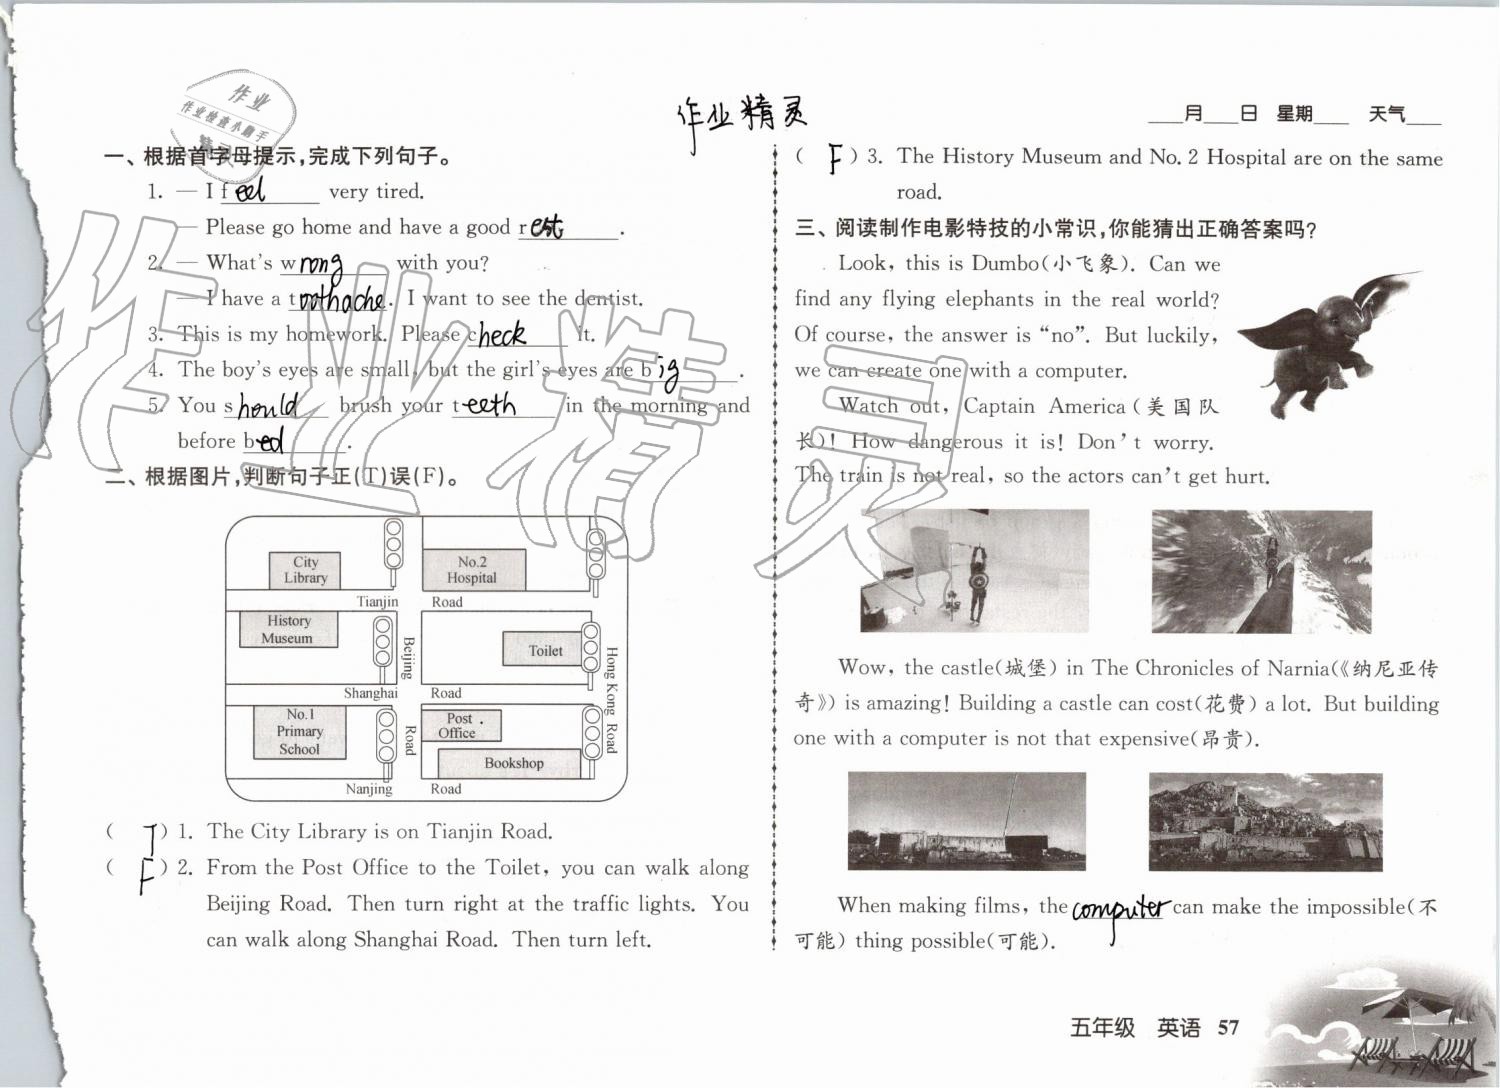 作业
作业检查小助手
作业精灵
___月___日 星期___ 天气___
一、根据首字母提示,完成下列句子。
1. — I feel very tired.
— Please go home and have a good rest.
2. — What's wrong with you?
— I have a toothache. I want to see the dentist.
3. This is my homework. Please check it.
4. The boy's eyes are small, but the girl's eyes are big.
5. You should brush your teeth in the morning and
before bed.
二、根据图片,判断句子正(T)误(F)。
City Library
No.2 Hospital
Tianjin Road
History Museum
Beijing
Toilet
Hong Kong Road
Shanghai Road
No.1 Primary School
Road
Post Office
Bookshop
Nanjing Road
( T ) 1. The City Library is on Tianjin Road.
( F ) 2. From the Post Office to the Toilet, you can walk along
Beijing Road. Then turn right at the traffic lights. You
can walk along Shanghai Road. Then turn left.
( F ) 3. The History Museum and No. 2 Hospital are on the same
road.
三、阅读制作电影特技的小常识,你能猜出正确答案吗?
Look, this is Dumbo(小飞象). Can we
find any flying elephants in the real world?
Of course, the answer is “no”. But luckily,
we can create one with a computer.
Watch out, Captain America(美国队
长)! How dangerous it is! Don't worry.
The train is not real, so the actors can't get hurt.
Wow, the castle(城堡) in The Chronicles of Narnia(《纳尼亚传
奇》) is amazing! Building a castle can cost(花费) a lot. But building
one with a computer is not that expensive(昂贵).
When making films, the computer can make the impossible(不
可能) thing possible(可能).
五年级 英语 57
作业精灵